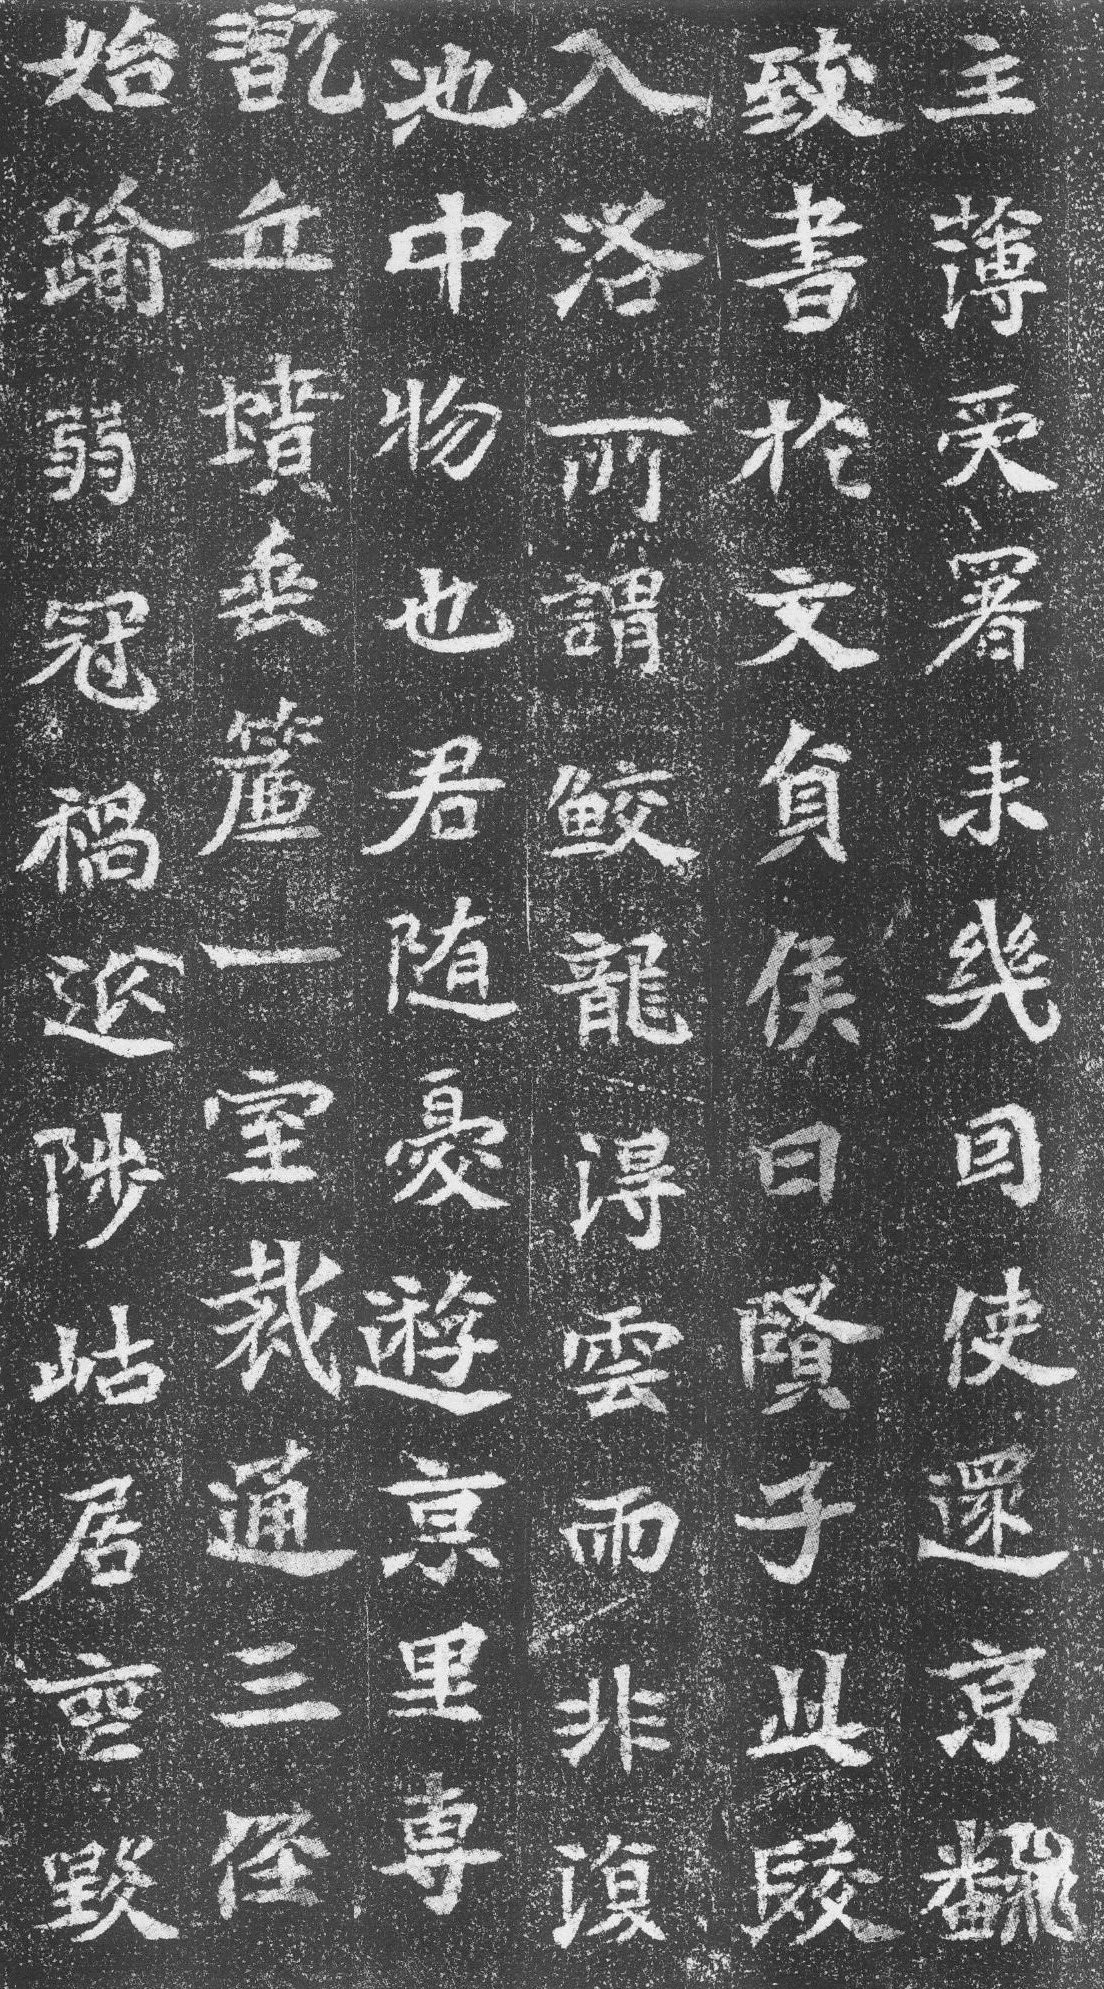 主薄受署未幾囙使還京飜
致書於文貟侯曰賢子此段
入洛所謂鮫龍得雲雨非復
池中物也君随憂遊京里専
翫丘墳垂簾一室裁通三俓
始踰弱冠禍陟岵居喪毀